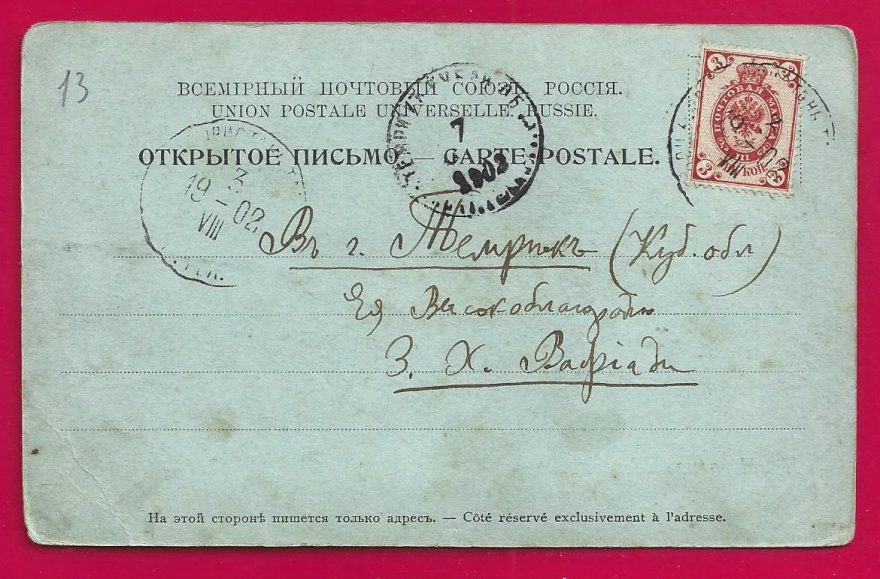 13
ВСЕМІРНЫЙ ПОЧТОВЫЙ СОЮЗЪ. РОССІЯ.
UNION POSTALE UNIVERSELLE. RUSSIE.
ОТКРЫТОЕ ПИСЬМО — CARTE POSTALE.
3 3
ПОЧТОВАЯ МАРКА
3 КОП 3
3
19-02
VIII
7
1902
Въ г. Темрюкъ (Куб. обл)
Ея Высокоблагородію
З. Х. Вафіади
На этой сторонѣ пишется только адресъ. — Côté réservé exclusivement à l'adresse.